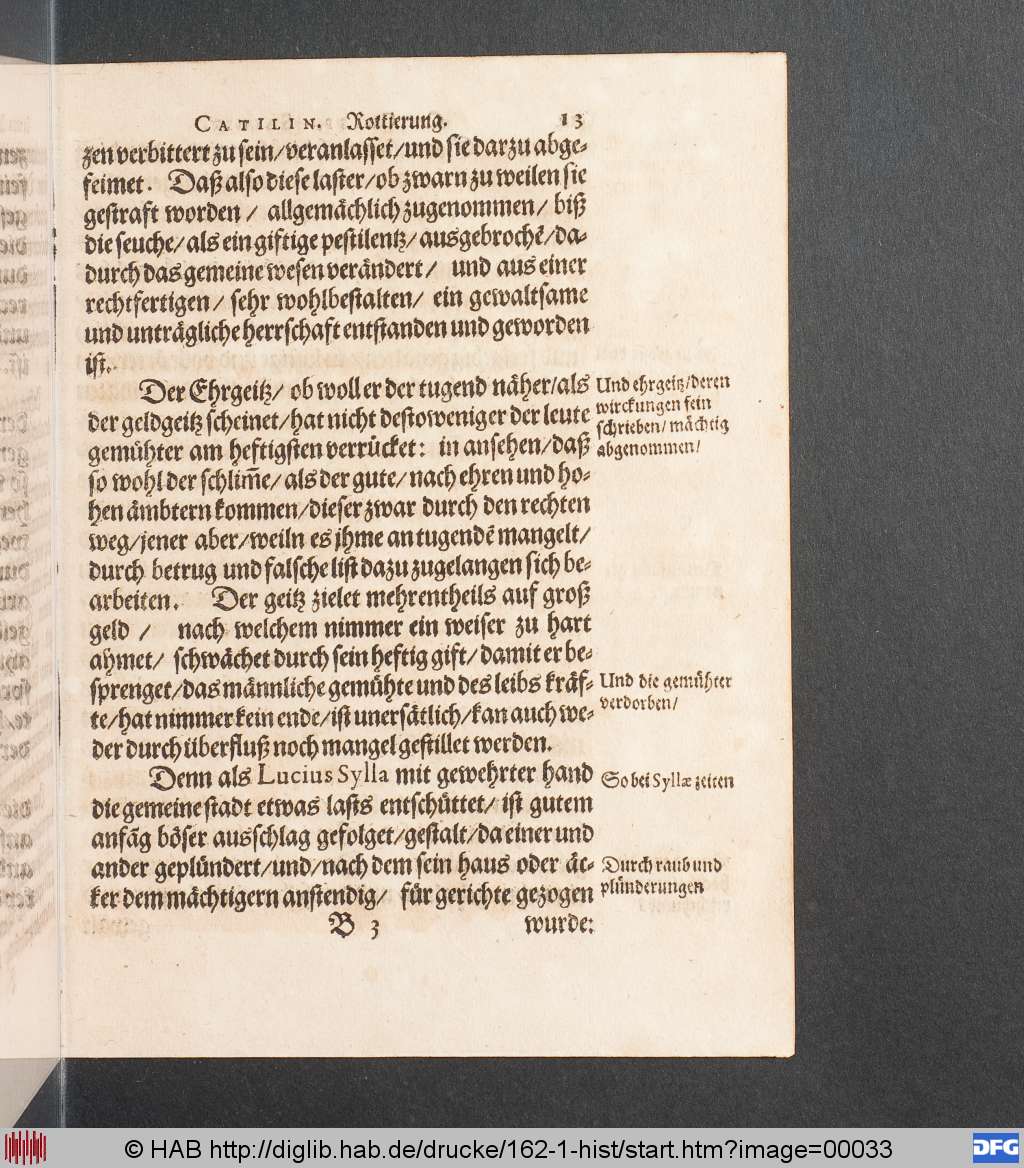 CATILIN. Rottierung. 13
zen verbittert zu sein/veranlasset/und sie darzu abge-
feimet. Daß also diese laster/ob zwarn zu weilen sie
gestraft worden/ allgemächlich zugenommen/ biß
die seuche/als ein giftige pestilentz/ausgebrochē/da-
durch das gemeine wesen verändert/ und aus einer
rechtfertigen/ sehr wohlbestalten/ ein gewaltsame
und unträgliche herrschaft entstanden und geworden
ist.
Der Ehrgeitz/ ob woll er der tugend näher/als
der geldgeitz scheinet/hat nicht destoweniger der leute
gemühter am heftigsten verrücket: in ansehen/daß
so wohl der schlim̃e/als der gute/nach ehren und ho-
hen ämbtern kommen/dieser zwar durch den rechten
weg/jener aber/weiln es jhme an tugendē mangelt/
durch betrug und falsche list dazu zugelangen sich be-
arbeiten. Der geitz zielet mehrentheils auf groß
geld / nach welchem nimmer ein weiser zu hart
ahmet/ schwächet durch sein heftig gift/damit er be-
sprenget/das männliche gemühte und des leibs kräf-
te/hat nimmer kein ende/ist unersätlich/kan auch we-
der durch überfluß noch mangel gestillet werden.
Denn als Lucius Sylla mit gewehrter hand
die gemeine stadt etwas lasts entschüttet/ ist gutem
anfãg böser ausschlag gefolget/gestalt/da einer und
ander geplündert/und/nach dem sein haus oder äc-
ker dem mächtigern anstendig/ für gerichte gezogen
B 3 wurde:
Und ehrgeitz/deren
wirckungen fein
schrieben/mächtig
abgenommen/
Und die gemühter
verdorben/
So bei Syllæ zeiten
Durch raub und
plünderungen
© HAB http://diglib.hab.de/drucke/162-1-hist/start.htm?image=00033
DFG